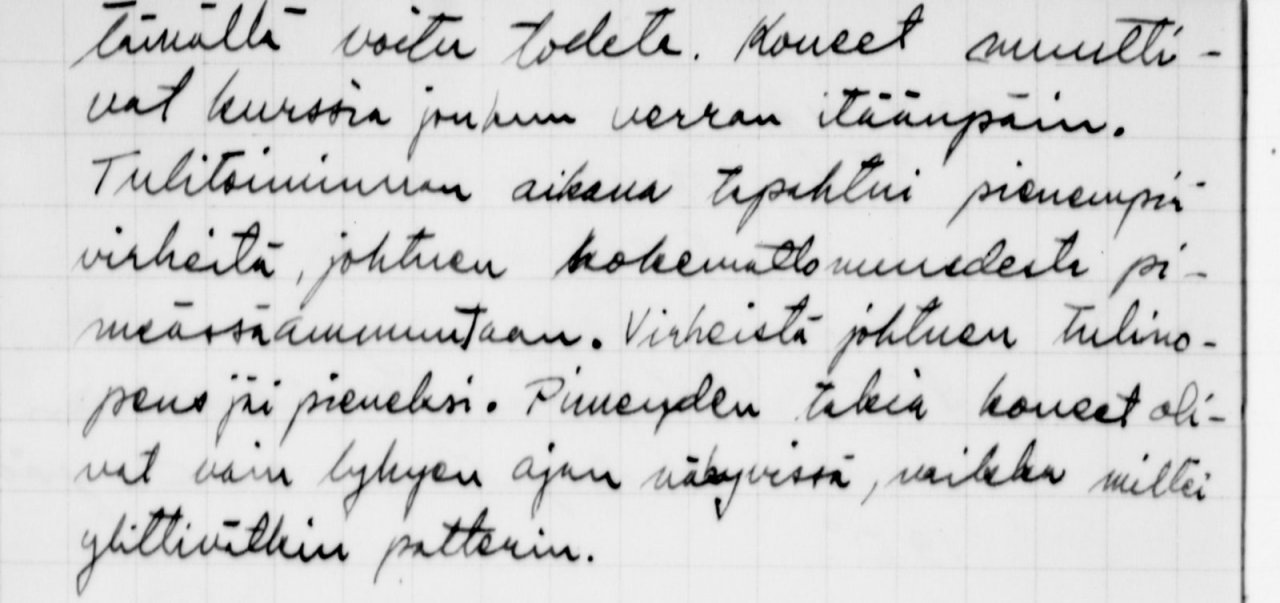 tämältä voitu todeta. Koneet muutti-
vat kurssia jonkun verran itäänpäin.
Tulitoiminnan aikana tapahtui pienempiä
virheitä, johtuen kokemattomuudesta pi-
meässäammuntaan. Virheistä johtuen tulino-
peus jäi pieneksi. Pimeyden takia koneet oli-
vat vain lyhyen ajan näkyvissä, vaikka miltei
ylittivätkin patterin.